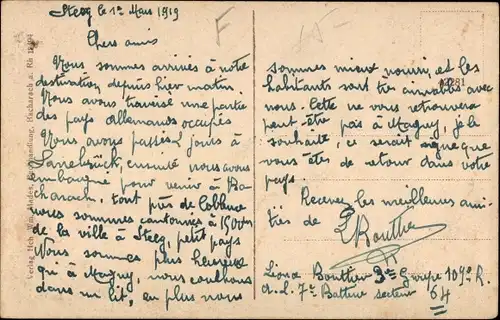 Steeg le 1er Mars 1919
Chers amis
Nous sommes arrivés à notre
destination depuis hier matin.
Nous avons traversé une partie
des pays allemands occupés
Nous avons passés 2 jours à
ensuite nous avons
embarqué pour venir à Ba-
charach, tout près de Coblence
nous sommes cantonnés à 1500m
de la ville à Steeg, petit pays
Nous sommes plus heureux
qu'à Magny, nous couchons
dans un lit, en plus nous
sommes mieux nourri, et les
habitants sont très aimables avec
nous. Cette ne vous retrouvera
peut-être pas à Magny, je le
souhaite, ce serait signe que
vous êtes de retour dans votre
pays.
Recevez les meilleures ami-
tiés de
LBouthier
Bouthier 3me Groupe 109e R.
A.L. 7e Batterie secteur 64
Verlag Hch. Bacharach a. Rh
F